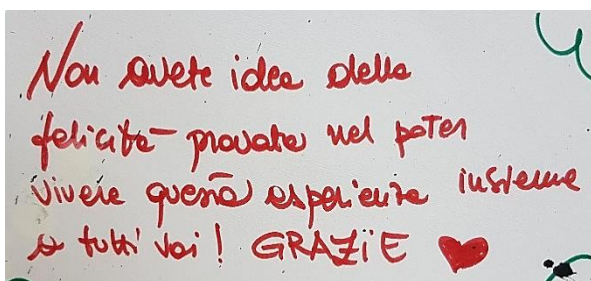 Non avete idea della
felicità provata nel poter
vivere questa esperienza insieme
a tutti voi! GRAZiE ❤